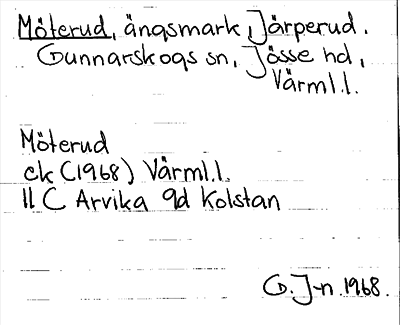 Möterud, ängsmark, Järperud.
Gunnarskogs sn, Jösse hd,
Värml.l.
Möterud
ek (1968) Värml.l.
11 C Arvika 9d Kolstan
G. J-n 1968.